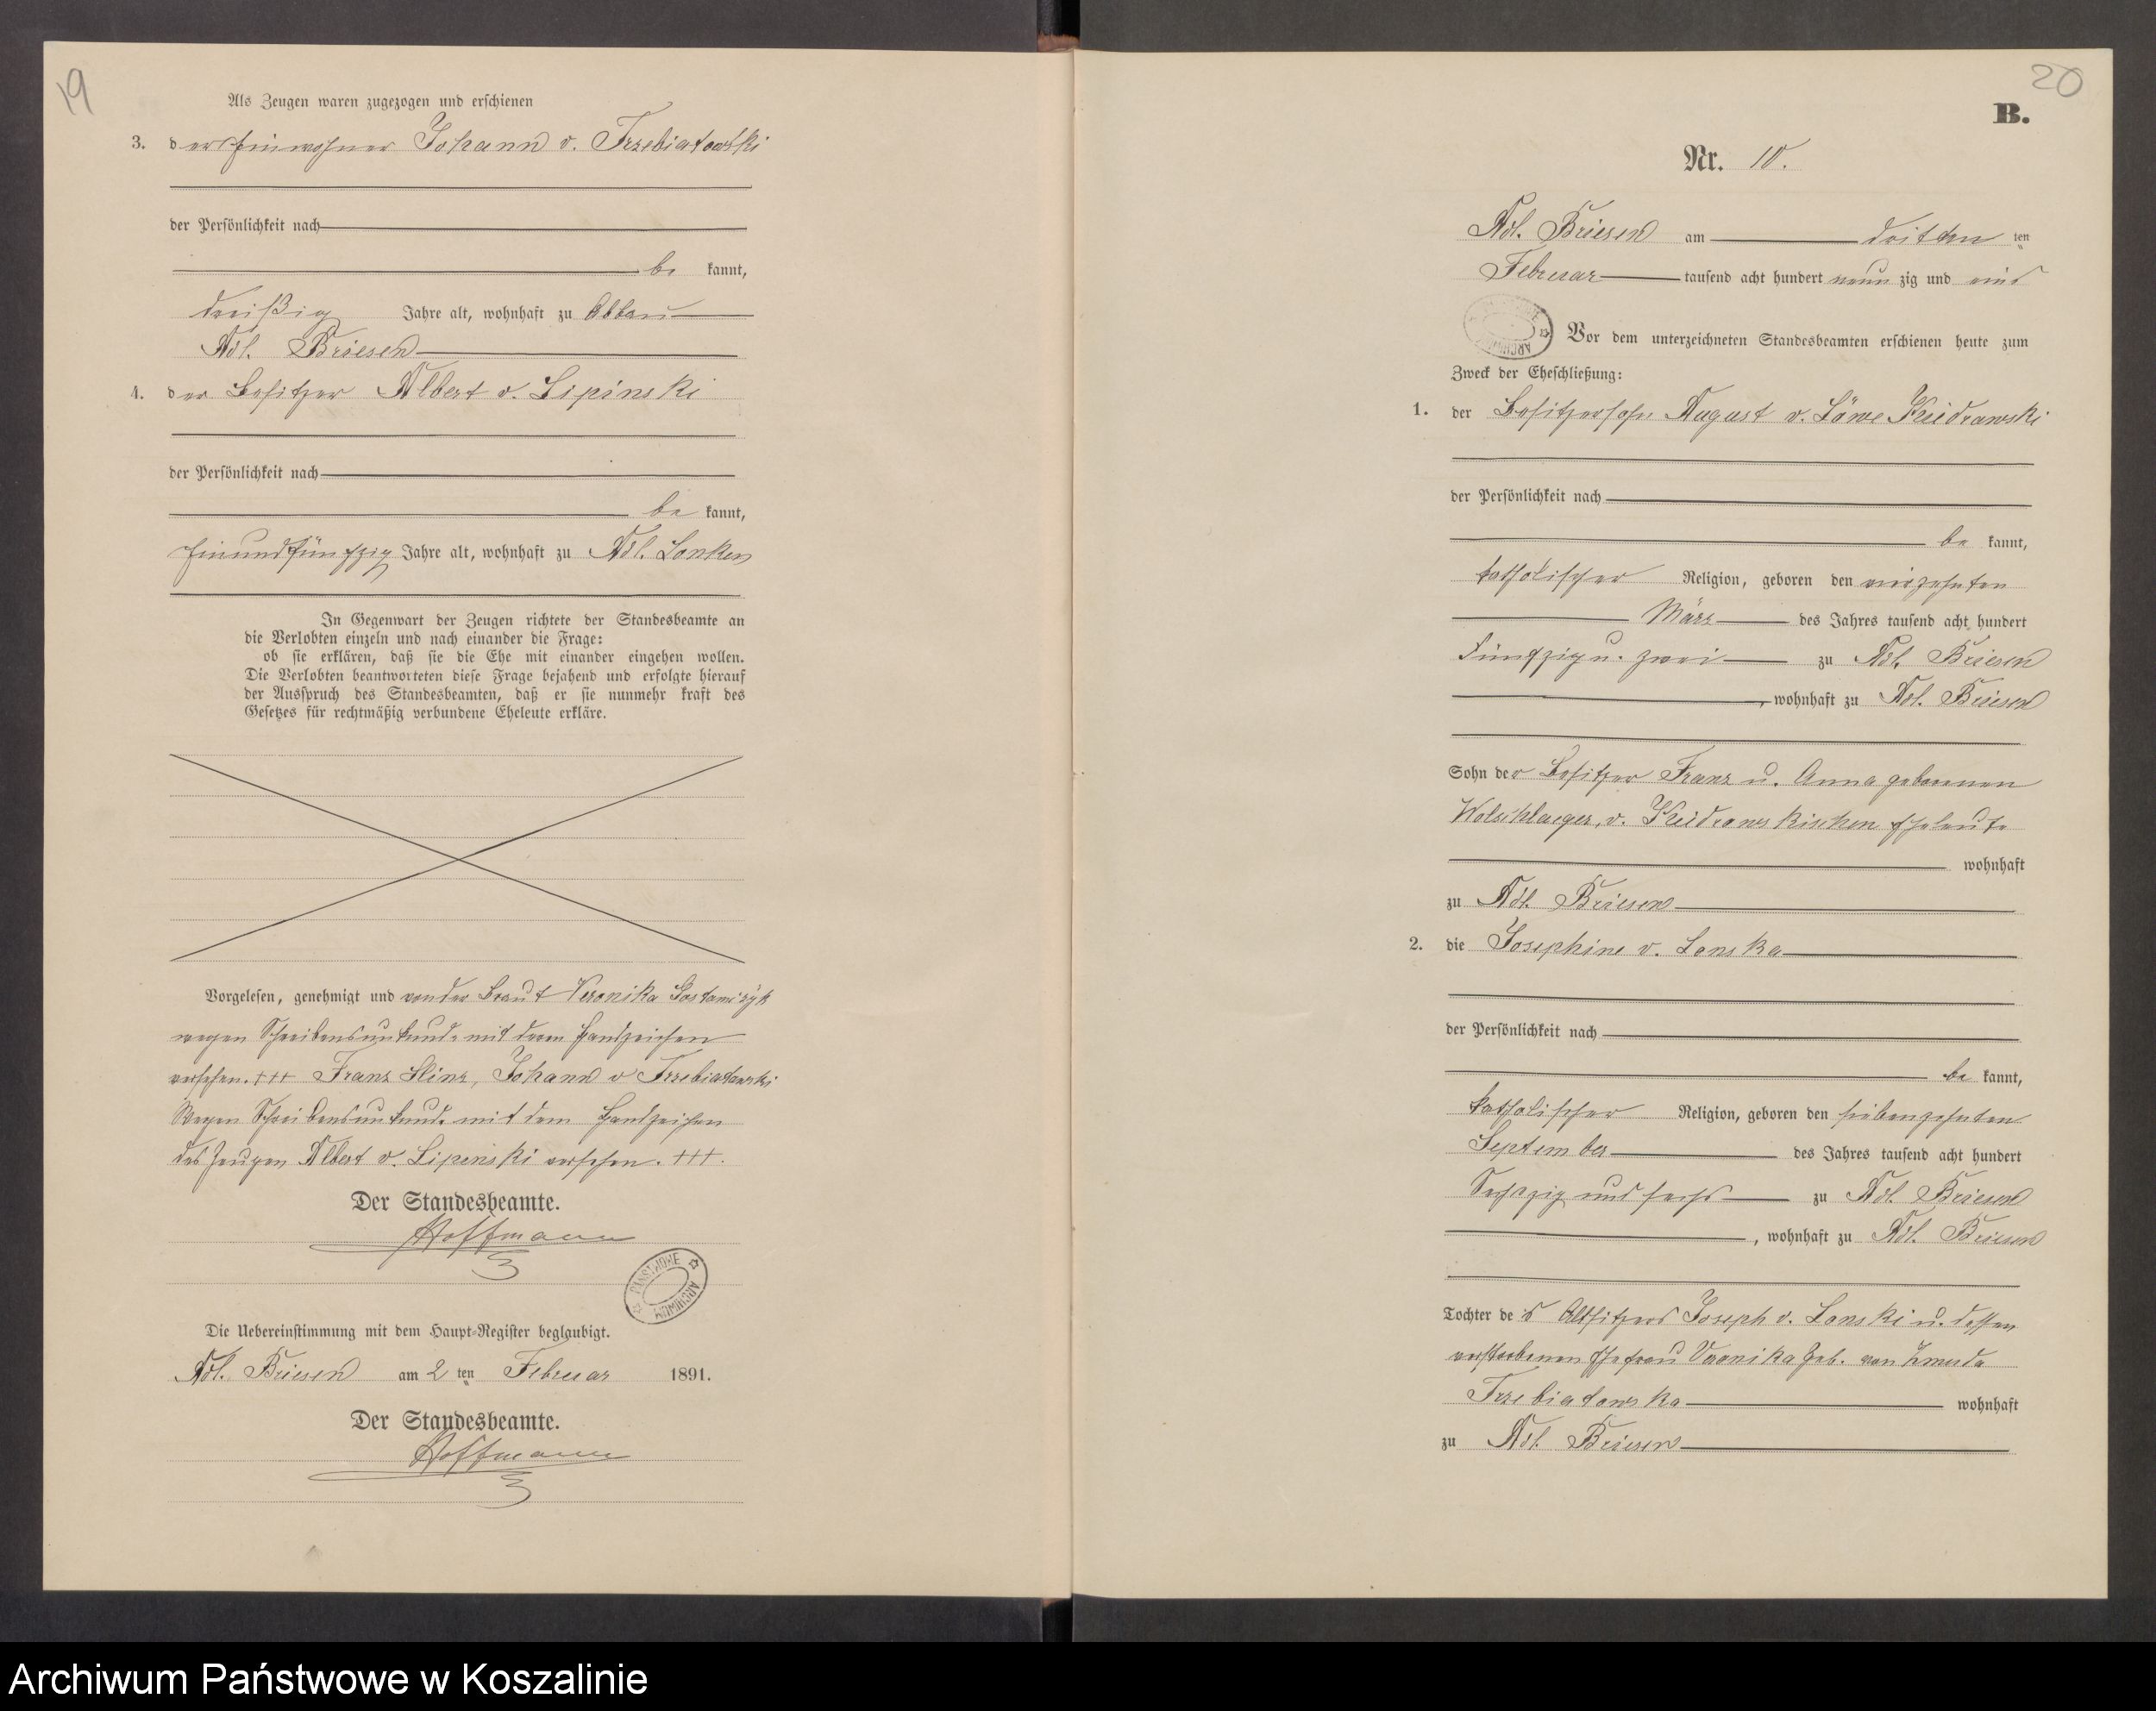 19
Als Zeugen waren zugezogen und erschienen
3. der Einwohner Johann v. Trzebiatowski
der Persönlichkeit nach
be kannt,
dreißig Jahre alt, wohnhaft zu Abbau
Adl. Briesen
4. der Besitzer Albert v. Lipinski
der Persönlichkeit nach
be kannt,
Einundfünfzig Jahre alt, wohnhaft zu Adl. Lonken
In Gegenwart der Zeugen richtete der Standesbeamte an
die Verlobten einzeln und nach einander die Frage:
ob sie erklären, daß sie die Ehe mit einander eingehen wollen.
Die Verlobten beantworteten diese Frage bejahend und erfolgte hierauf
der Ausspruch des Standesbeamten, daß er sie nunmehr kraft des
Gesetzes für rechtmäßig verbundene Eheleute erkläre.
Vorgelesen, genehmigt und von der Braut Veronika
wegen Schreibensunkunde mit deren Handzeichen
versehen. +++ Franz Hinz, Johann v Trzebiatowski
Wegen Schreibensunkunde mit dem Handzeichen
des Zeugen Albert v. Lipinski versehen. +++.
Der Standesbeamte.
Hoffmann
PAŃSTWOWE ARCHIWUM
Die Uebereinstimmung mit dem Haupt-Register beglaubigt.
Adl. Briesen am 2 ten Februar 1891.
Der Standesbeamte.
Hoffmann
20
B.
Nr. 10.
Adl. Briesen am dritten ten
Februar tausend acht hundert neun zig und eins
ARCHIWUM
Vor dem unterzeichneten Standesbeamten erschienen heute zum
Zweck der Eheschließung:
1. der Besitzersohn August v. Löwe Kiedrowski
der Persönlichkeit nach
be kannt,
katholischer Religion, geboren den vierzehnten
März des Jahres tausend acht hundert
Fünfzig u. zwei zu Adl. Briesen
, wohnhaft zu Adl. Briesen
Sohn der Besitzer Franz u. Anna geborenen
Wolschlaeger, v. Kiedrowskischen Eheleute
wohnhaft
zu Adl. Briesen
2. die Josephine v. Lonska
der Persönlichkeit nach
be kannt,
katholischer Religion, geboren den siebenzehnten
September des Jahres tausend acht hundert
Sechszig und sechs zu Adl. Briesen
, wohnhaft zu Adl. Briesen
Tochter des Altsitzers Joseph v. Lonski u. dessen
verstorbenen Ehefrau Veronika geb. von Zmuda
Trzebiatowska wohnhaft
zu Adl. Briesen
Archiwum Państwowe w Koszalinie